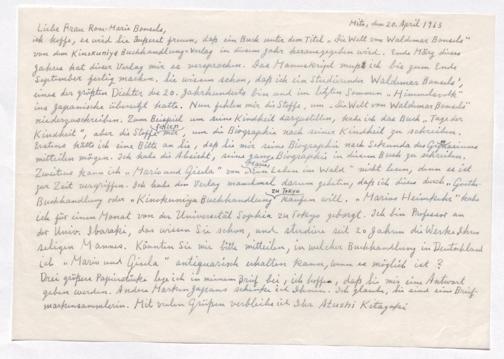 Mito, den 20. April 1963
Liebe Frau Rose-Marie Bonsels,
ich hoffe, es wird Sie äußerst freuen, daß ein Buch unter dem Titel „die Welt von Waldemar Bonsels"
von dem Kinokuniya Buchhandlung-Verlag in diesem Jahr herausgegeben wird. Ende März dieses
Jahres hat dieser Verlag mir es versprochen. Das Manuskript muß ich bis zum Ende
September fertig machen. Sie wissen schon, daß ich ein Studierender Waldemar Bonsels',
eines der größten Dichter des 20. Jahrhunderts bin und im letzten Sommer „Himmelsvolk"
ins Japanische übersetzt hatte. Nun fehlen mir die Stoffe, um „die Welt von Waldemar Bonsels"
niederzuschreiben. Zum Beispiel um seine Kindheit darzustellen, habe ich das Buch „Tage der
Kindheit", aber die Stoffe fehlen mir, um die Biographie nach seiner Kindheit zu schreiben.
Erstens hätte ich eine Bitte an Sie, daß Sie mir seine Biographie nach Sekunda des Gymnasiums
mitteilen mögen. Ich habe die Absicht, seine ganz Biographie in diesem Buch zu schreiben.
Zweitens kann ich „Mario und Gisela" von Leben im Wald" nicht lesen, denn es ist
zur Zeit vergriffen. Ich habe den Verlag manchmal darum gebeten, daß ich dies durch „Goethe-
Buchhandlung oder „Kinokuniya Buchhandlung zu Tokyo kaufen will. „Marios Heimkehr" habe
ich für einen Monat von der Universität Sophia zu Tokyo geborgt. Ich bin Professor an
der Univ. Ibaraki, das wissen Sie schon, und studiere seit 20 Jahren die Werke Ihres
seligen Mannes. Könnten Sie mir bitte mitteilen, in welcher Buchhandlung in Deutschland
ich „Mario und Gisela" antiquarisch erhalten kann, wenn es möglich ist?
Drei größere Papierstücke lege ich in meinem Brief bei, ich hoffe, daß Sie mir eine Antwort
geben werden. Andere Marken Japans schenke ich Ihnen. Ich glaube, Sie sind eine Brief-
markensammlerin. Mit vielen Grüßen verbleibe ich Ihr Atushi Kitagaki